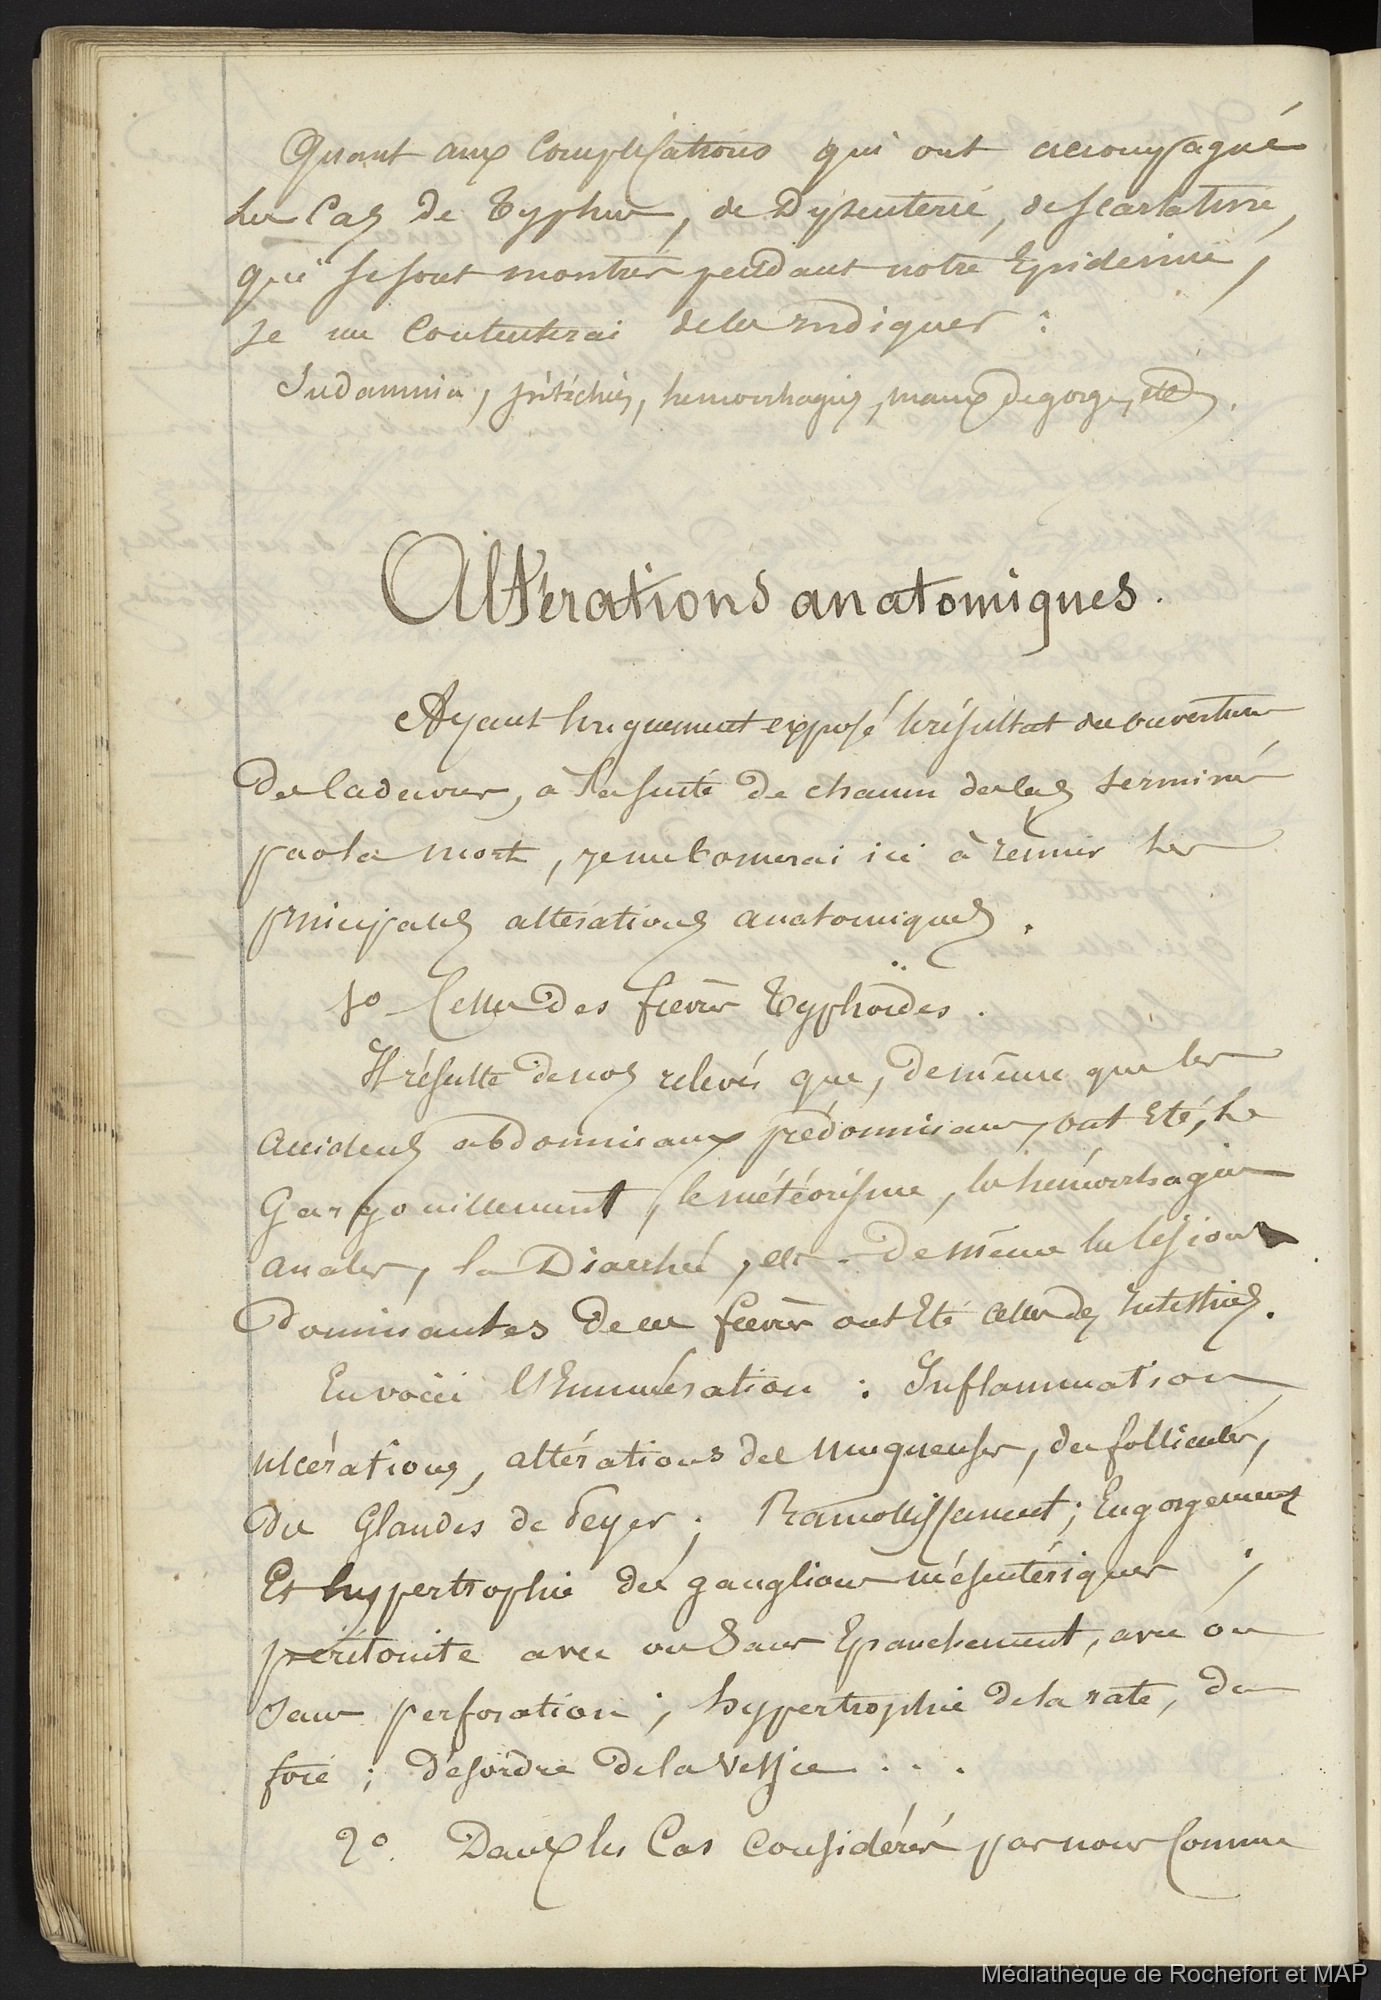 Quant aux Complications qui ont accompagné
les Cas de Typhus, de Dysenterie, de scarlatine,
qui se sont montrés pendant notre Epidémie,
je me Contenterai de les indiquer :
Sudamina, pétéchies, hemorrhagies, maux de gorge, etc.
Altérations anatomiques.
Ayant longuement exposé le résultat des ouvertures
des Cadavres, à la suite de chacun des Cas terminés
par la mort, je me bornerai ici à réunir les
principales altérations anatomiques.
1º Celles des fièvres Typhoïdes.
Il résulte de nos relevés que, de même que les
accidents abdominaux prédominants ont été, le
Gargouillement, le météorisme, les hémorrhagies
anales, la Diarrhée, etc. De même les lésions
dominantes de ces fièvres ont été celles des Intestins.
En voici l'Enumération : Inflammation
ulcérations, altérations des muqueuses, des follicules,
des Glandes de Peyer ; Ramollissement ; Engorgement
Et hypertrophie des ganglions mésentériques ;
péritonite avec ou sans Epanchement, avec ou
sans perforation ; hypertrophie de la rate, du
foie ; désordre de la Vessie . . .
2º. Dans les Cas considérés par nous Comme
Médiathèque de Rochefort et MAP